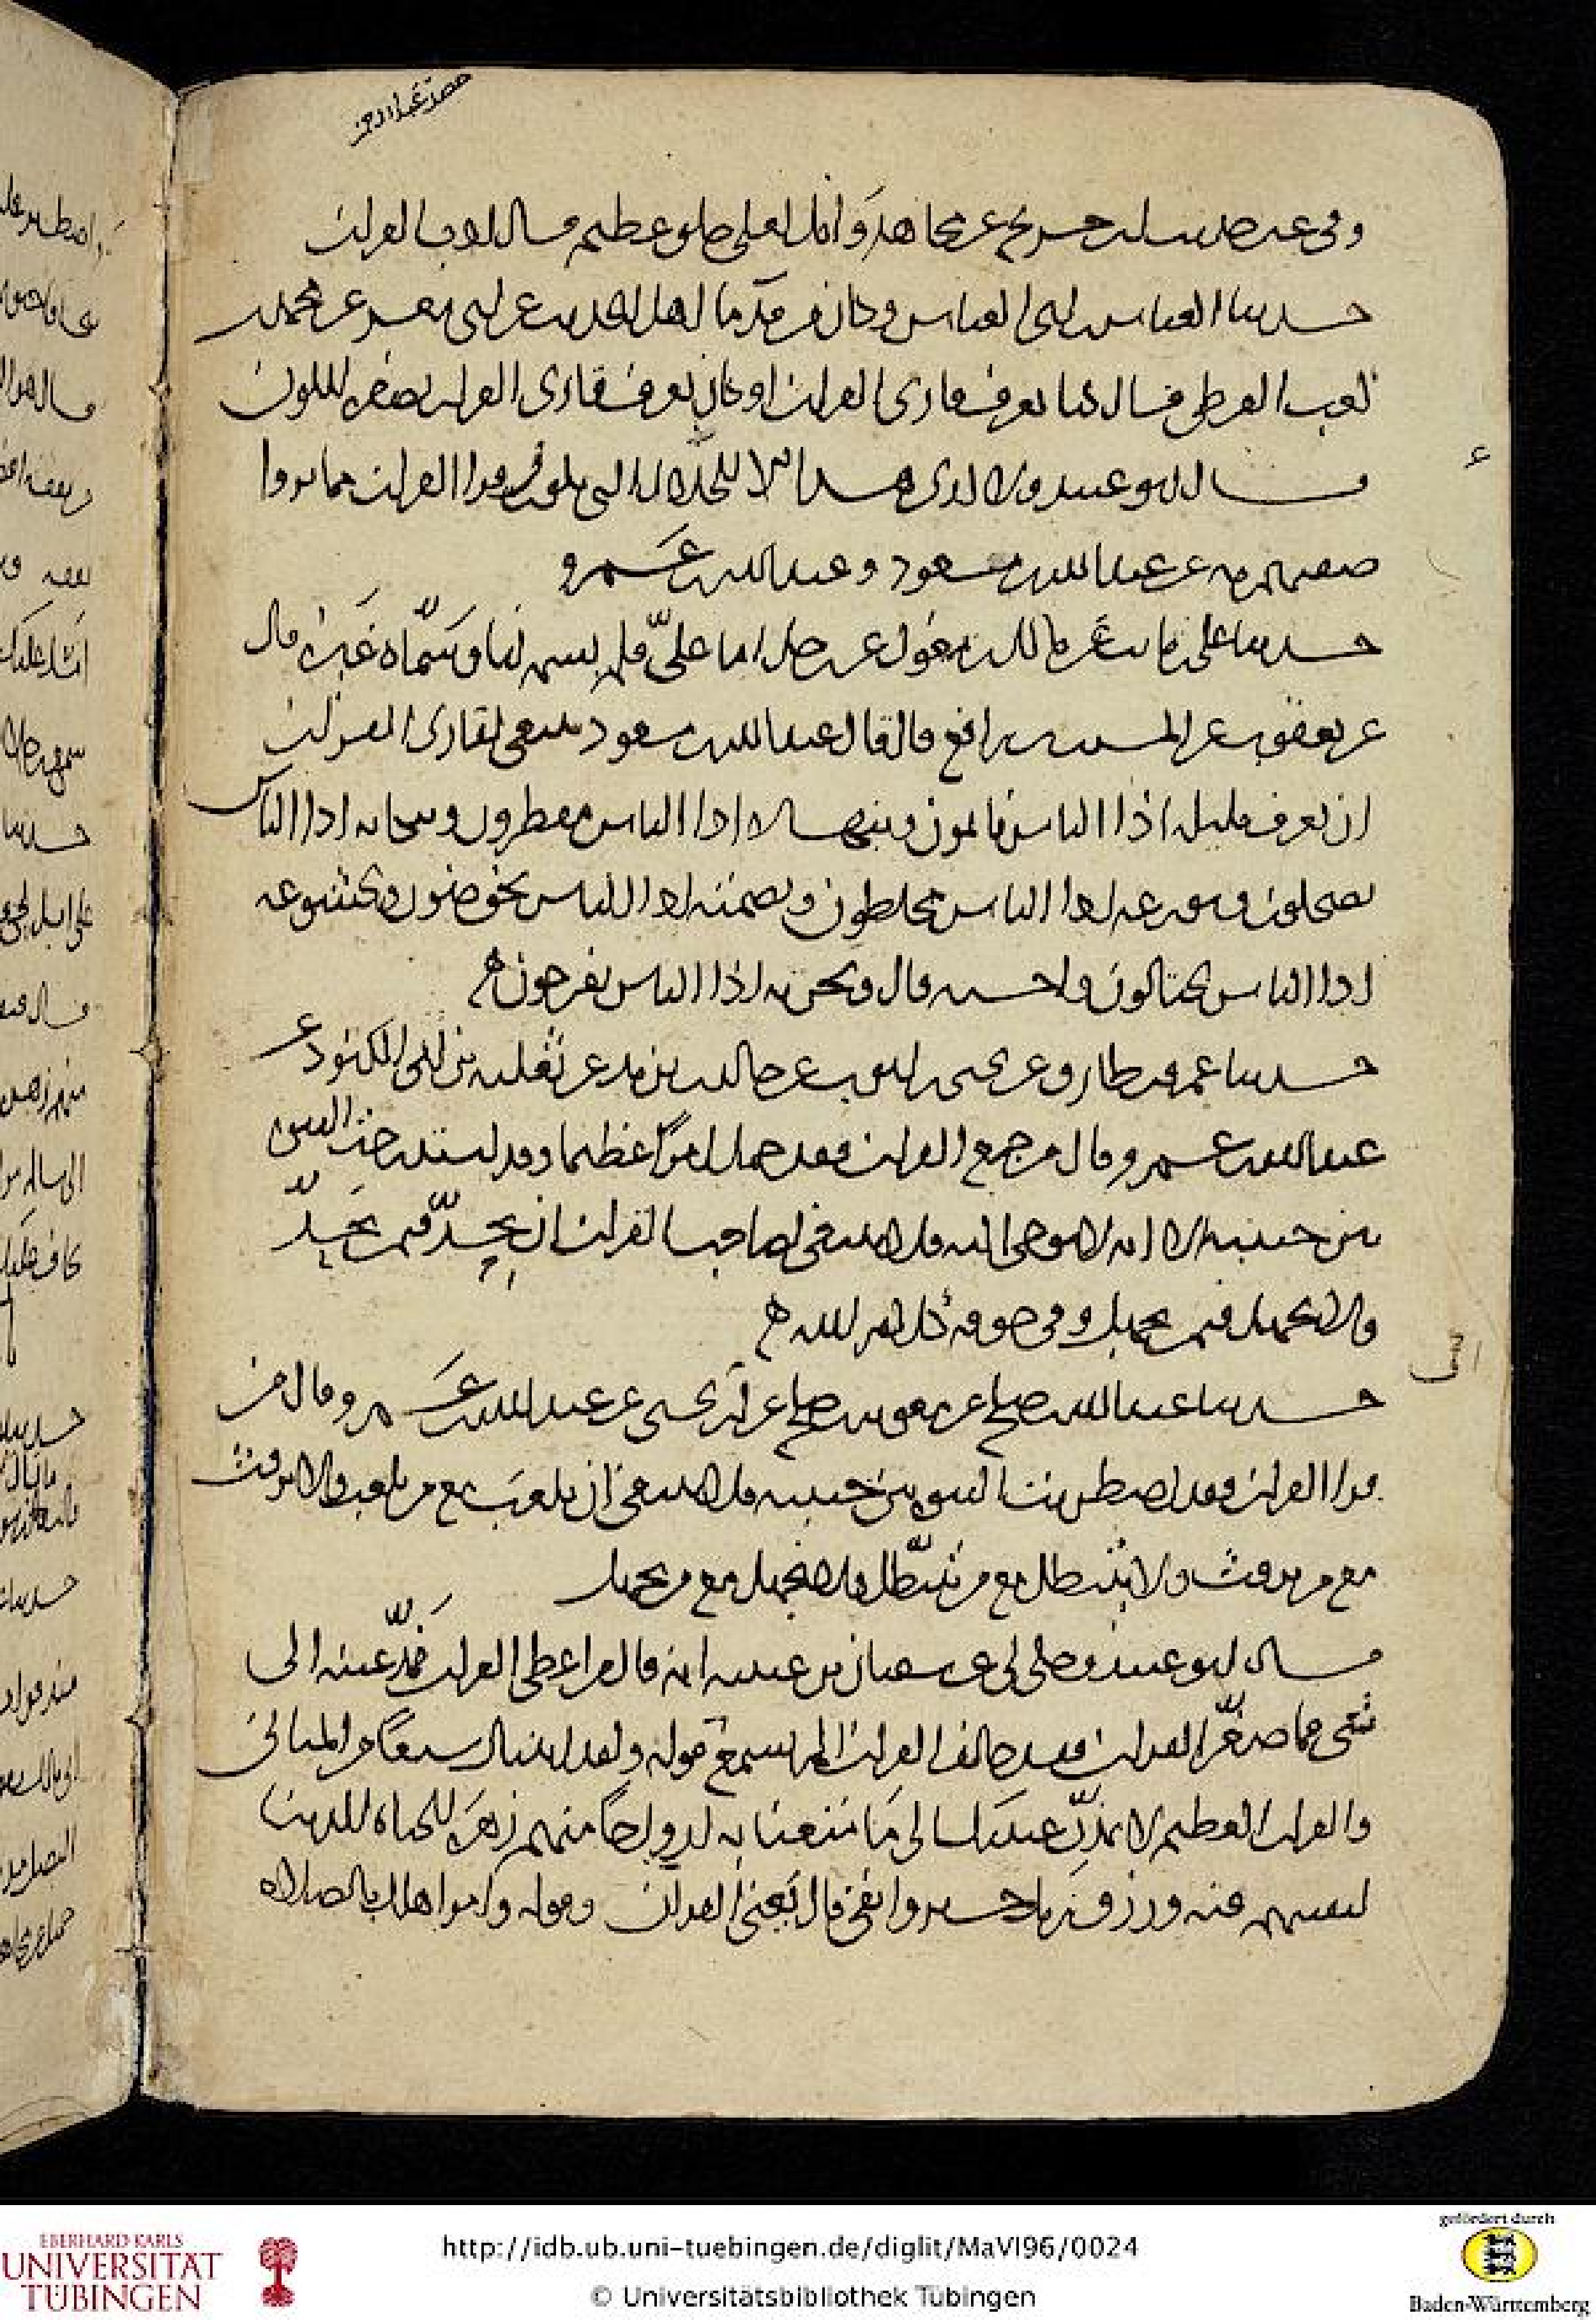 وفي غير حديث ابن جريج عن مجاهد وانك لعلى خلق عظيم قال ادب القران
حدثنا ابو العباس وكان من قدماء اهل الحديث عن ابي معشر عن محمد بن
كعب القرظي قال كنا نعرف قارئ القران او كان يعرف قارئ القران بصفرة اللون
قال ابو عبيد ولا ارى هذا الا للحلال التي تكون في قراء القران مما رووا
صفتهم به عن عبد الله بن مسعود وعبد الله بن عمرو
حدثنا علي بن ثابت عن مالك بن مغول عن رجل اما علي فلم يسمه لنا وسماه غيره قال
عن يعقوب عن المسيب بن رافع قال قال عبد الله بن مسعود ينبغي لقارئ القران
ان يعرف بليله اذا الناس نائمون وبنهاره اذا الناس مفطرون وببكائه اذا الناس
يضحكون وبورعه اذا الناس يخلطون وبصمته اذا الناس يخوضون وبخشوعه
اذا الناس يختالون واحسبه قال وبحزنه اذا الناس يفرحون
حدثنا عمرو بن طارق عن يحيى بن ايوب عن خالد بن يزيد عن ثعلبة بن ابي الكنود عن
عبد الله بن عمرو قال من جمع القران فقد حمل امرا عظيما وقد استدرجت النبوة
بين جنبيه الا انه لا يوحى اليه فلا ينبغي لصاحب القران ان يجد فيمن يجد
ولا يجهل فيمن يجهل وفي جوفه كلام الله
حدثنا عبد الله بن صالح عن معوية بن صالح عن ابي يحيى عن عبد الله بن عمرو قال من
قرا القران فقد اضطربت النبوة بين جنبيه فلا ينبغي ان يلعب مع من يلعب ولا يرفث
مع من يرفث ولا يتبطل مع من يتبطل ولا يجهل مع من يجهل
قال ابو عبيد وحكي لي عن سفيان بن عيينة انه قال من اعطي القران فمد عينه الى
شي مما صغر القران فقد خالف القران الم تسمع قوله ولقد اتيناك سبعا من المثاني
والقران العظيم لا تمدن عينيك الى ما متعنا به ازواجا منهم زهرة الحياة الدنيا
لنفتنهم فيه ورزق ربك خير وابقى قال يعني القران وقوله وامر اهلك بالصلاة
EBERHARD KARLS
UNIVERSITÄT
TÜBINGEN
http://idb.ub.uni-tuebingen.de/diglit/MaVI96/0024
© Universitätsbibliothek Tübingen
gefördert durch
Baden-Württemberg